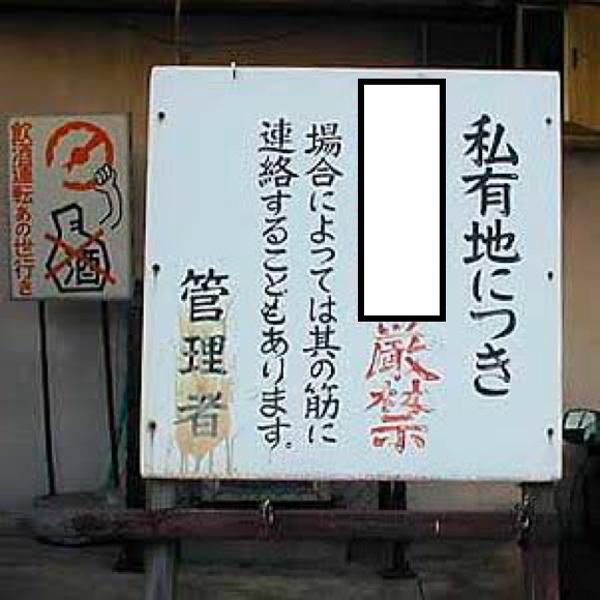 私有地につき
厳禁
場合によっては其の筋に
連絡することもあります。
管理者
飲酒運転あの世行き
酒